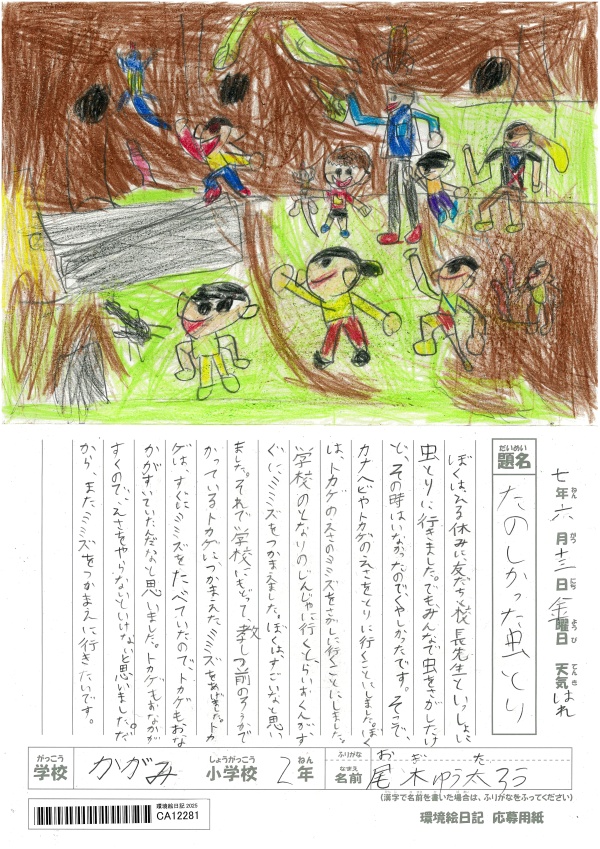 七年六月十三日金曜日 天気 はれ
ねん がつ にち ようび てんき
だいめい
題名
たのしかった虫とり
ぼくは公る休みに友だちと校長先生といっしょに
虫とりに行きました。でもみんなで虫をさがしたけ
ど、その時はいなかったのでくやしかったです。そこで、
カナヘビやトカゲのえさをとりに行くことにしました。ぼく
は、トカゲのえさのミミズをさがしに行くことにしました。
学校のとなりのじんじゃに行くと、らいおくんが、す
ぐにミミズをつかまえました。ぼくは、すごいなと思い
ました。それで学校にもどって、教しつ前のろうかで
かっているトカゲにつかまえたミミズをあげました。トカ
ゲは、すぐにミミズをたべていたので、トカゲもおな
かがすいていたんだなと思いました。トカゲもおなかが
すくので、えさをやらないといけないと思いました。だ
から、またミミズをつかまえに行きたいです。
がっこう
学校
かがみ
しょうがっこう
小学校
2年
ねん
ふりがな
なまえ
名前
お ぎ た
尾木ゆう太ろう
(漢字で名前を書いた場合は、ふりがなをふってください)
環境絵日記2025
CA12281
環境絵日記 応募用紙